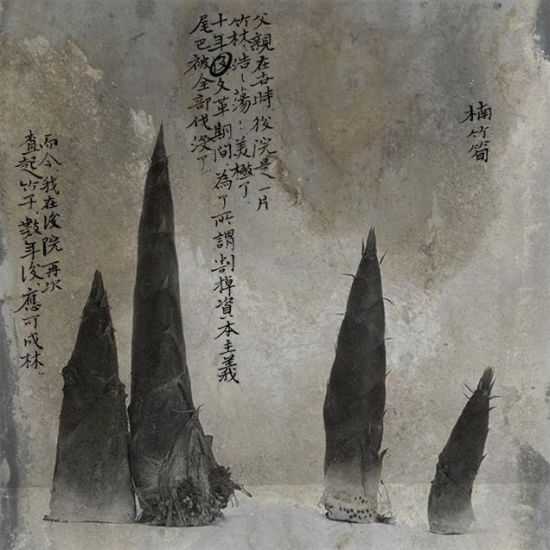 楠竹筍
父親在世時,後院是一片
竹林,浩〻蕩〻,美極了.
十年文革期間,為了所謂割掉資本主義
尾巴被全部伐没了.
而今,我在後院再次
起竹子,數年後,應可成林.